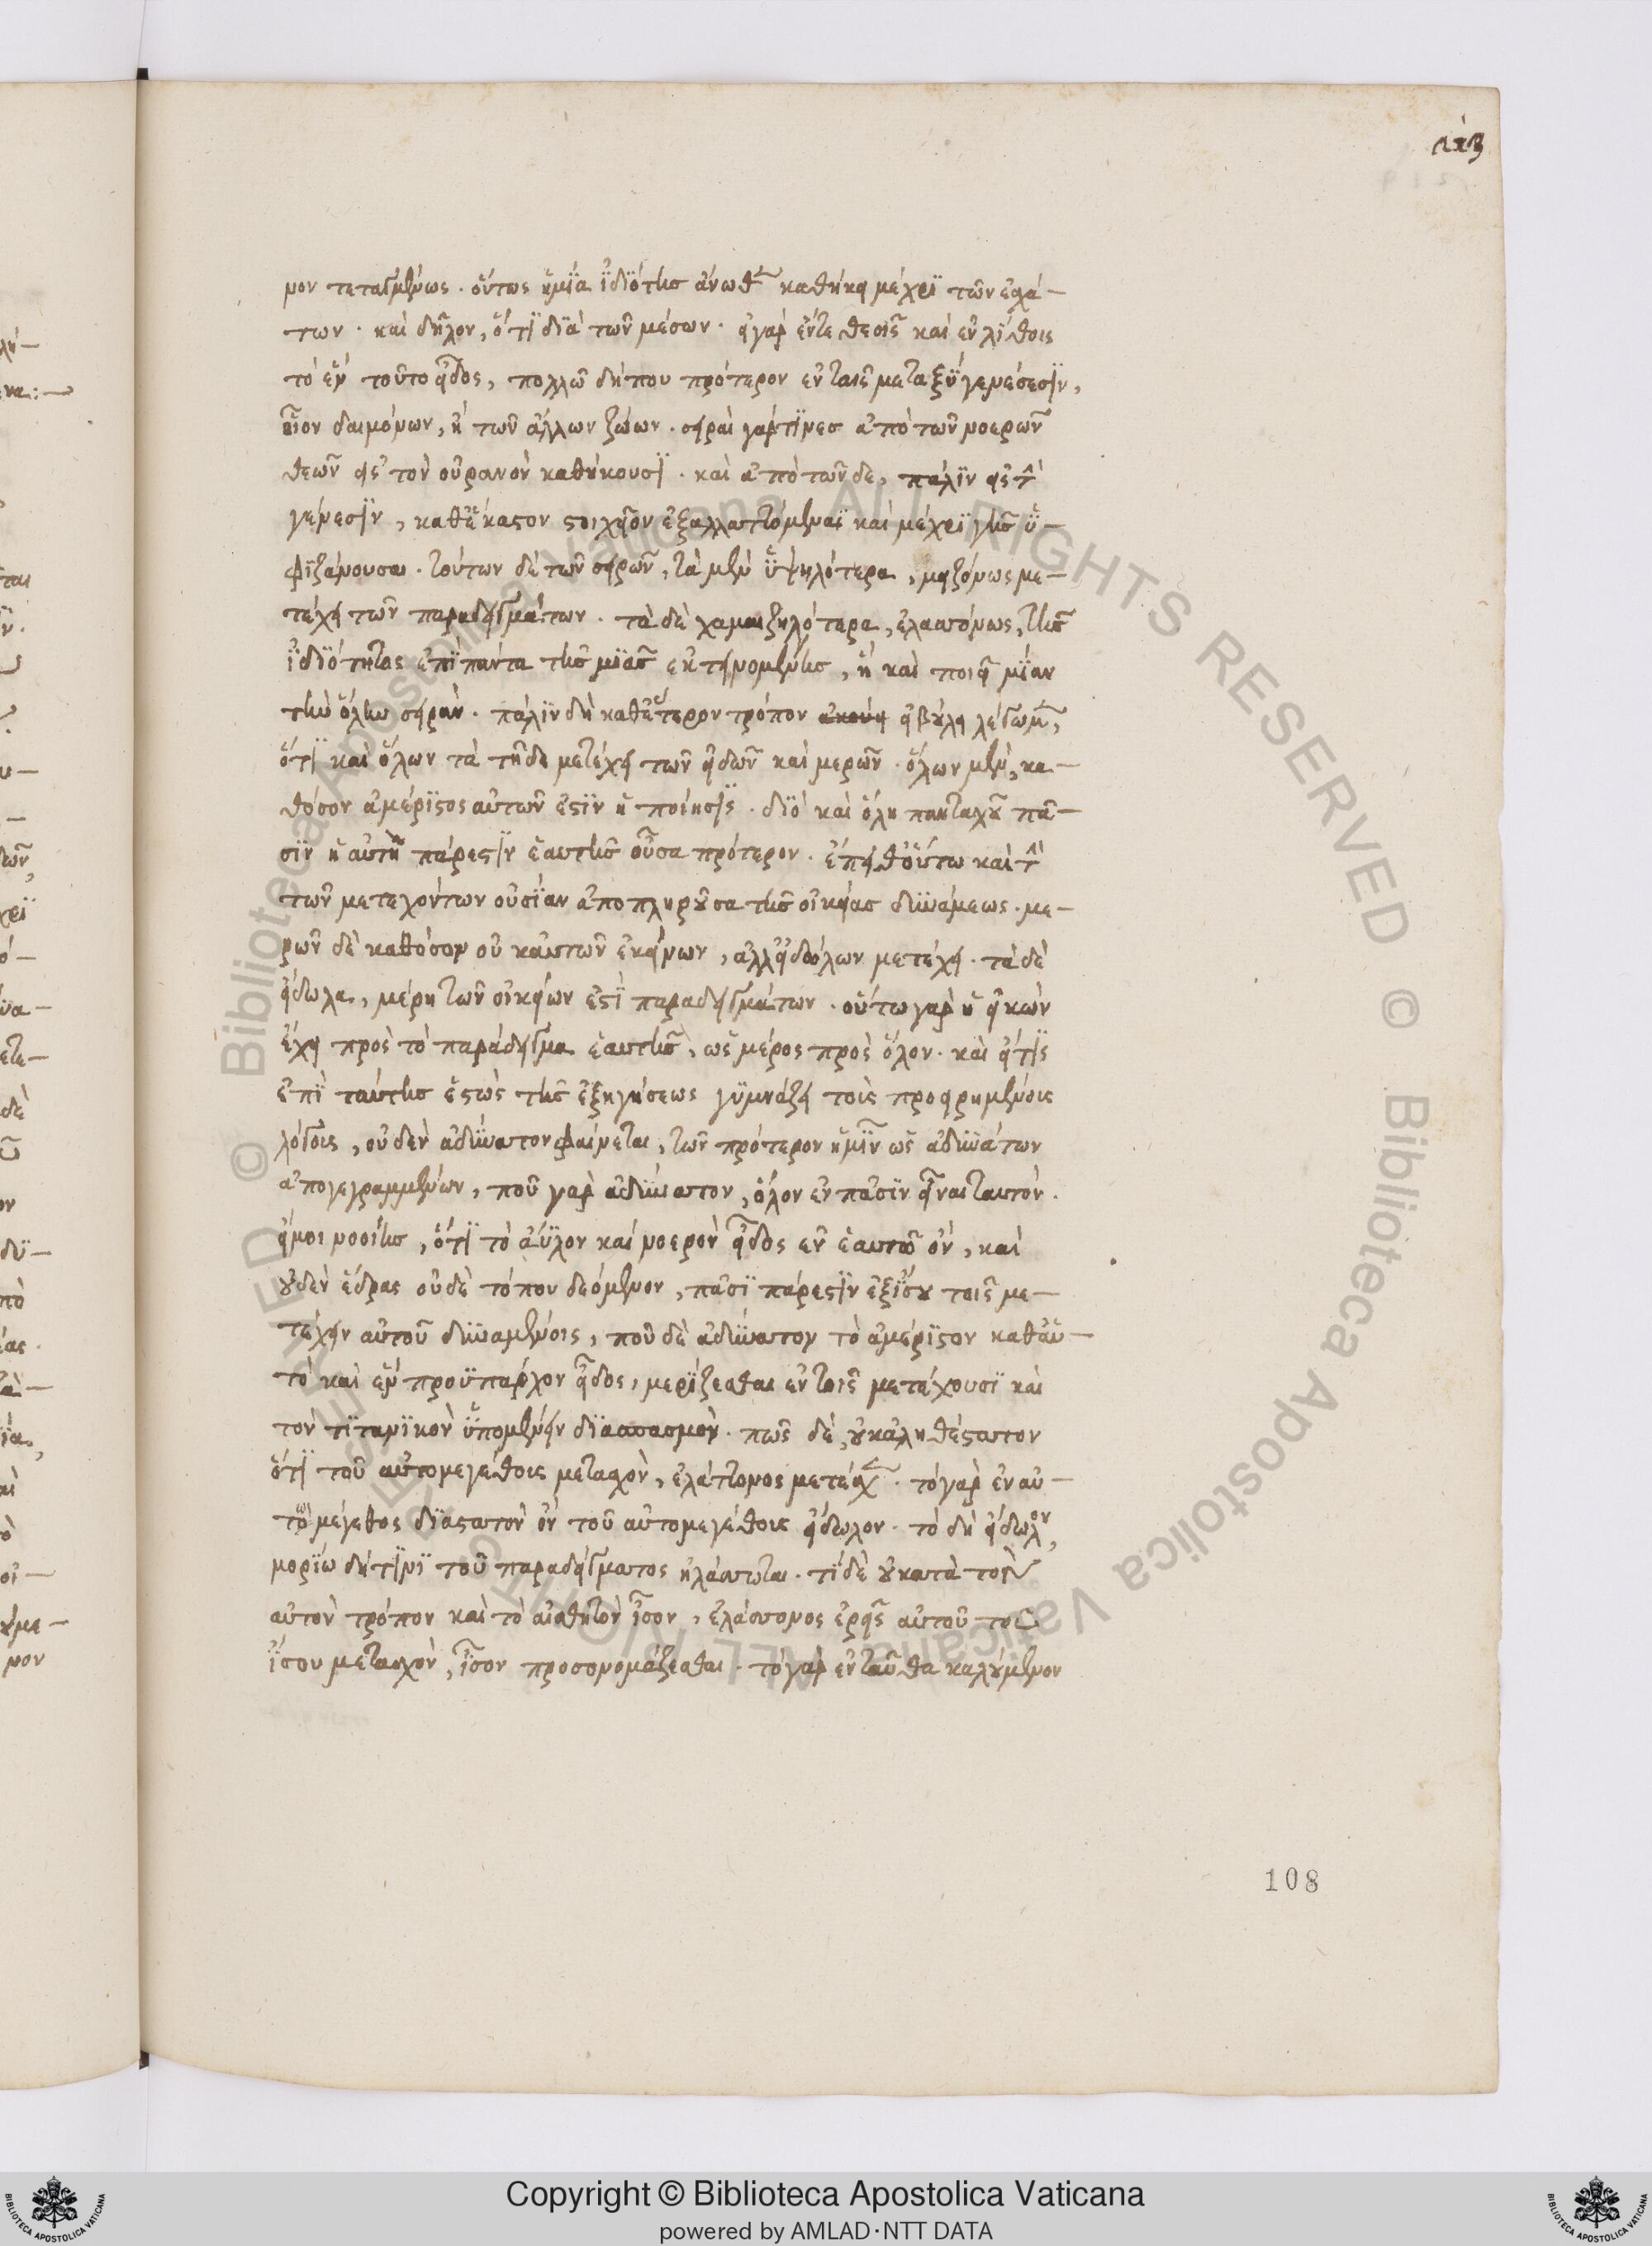 μον τεταγμένως. οὕτως ἡ μία ἰδιότης ἄνωθεν καθήκει μέχρι τῶν ἐσχά-
των. καὶ δῆλον, ὅτι διὰ τῶν μέσων. εἰ γὰρ ἔν τε θεοῖς καὶ ἐν λίθοις
τὸ ἓν τοῦτο εἶδος, πολλῶ δήπου πρότερον ἐν ταῖς μεταξὺ γενέσεσιν,
οἷον δαιμόνων, ἢ τῶν ἄλλων ζώων. σειραὶ γάρ τινες ἀπὸ τῶν νοερῶν
θεῶν εἰς τὸν οὐρανὸν καθήκουσι. καὶ ἀπὸ τῶνδε, πάλιν εἰς τὴν
γένεσιν, καθ' ἕκαστον στοιχεῖον ἐξαλλαττόμεναι καὶ μέχρι γῆς ὑ-
φιζάνουσαι. τούτων δὲ τῶν σειρῶν, τὰ μὲν ὑψηλότερα, μειζόνως με-
τέχει τῶν παραδειγμάτων. τὰ δὲ χαμαιζηλότερα, ἐλαττόνως, τῆς
ἰδιότητος ἐπὶ πάντα τῆς μιᾶς ἐκτεινομένης, ἣ καὶ ποιεῖ μίαν
τὴν ὅλην σειράν. πάλιν δὴ καθ' ἕτερον τρόπον ἀκούει εἰ βούλει λέγωμεν,
ὅτι καὶ ὅλων τὰ τῆδε μετέχει τῶν εἰδῶν καὶ μερῶν. ὅλων μὲν, κα-
θόσον ἀμέριστος αὐτῶν ἐστὶν ἡ ποίησις. διὸ καὶ ὅλη πανταχοῦ πᾶ-
σιν ἡ αὐτὴ πάρεστιν ἑαυτῆς οὖσα πρότερον. ἔπειθ' οὕτω καὶ τὴν
τῶν μετεχόντων οὐσίαν ἀποπληροῦσα τῆς οἰκείας δυνάμεως. με-
ρῶν δὲ καθόσον οὐκ αὐτῶν ἐκείνων, ἀλλ' εἰδώλων μετέχει. τὰ δὲ
εἴδωλα, μέρη τῶν οἰκείων ἐστὶ παραδειγμάτων. οὕτω γὰρ ἡ εἰκὼν
ἔχει πρὸς τὸ παράδειγμα ἑαυτῆς, ὡς μέρος πρὸς ὅλον. καὶ εἴ τις
ἐπὶ ταύτης ἑστὼς τῆς ἐξηγήσεως γυμνάζει τοῖς προειρημένοις
λόγοις, οὐδὲν ἀδύνατον φαίνεται, τῶν πρότερον ἡμῖν ὡς ἀδυνάτων
ἀπογεγραμμένων, ποῦ γὰρ ἀδύνατον, ὅλον ἐν πᾶσιν εἶναι ταυτόν.
εἴ μοι νοοίης, ὅτι τὸ ἄϋλον καὶ νοερὸν εἶδος ἐν ἑαυτῶ ὂν, καὶ
οὐδὲν ἕδρας οὐδὲ τόπου δεόμενον, πᾶσι πάρεστιν ἐξίσου τοῖς με-
τέχειν αὐτοῦ δυναμένοις, ποῦ δὲ ἀδύνατον τὸ ἀμέριστον καθ' αὑ-
τὸ καὶ ἓν προϋπάρχον εἶδος, μερίζεσθαι ἐν τοῖς μετέχουσι καὶ
τὸν τιτανικὸν ὑπομένειν διασπασμόν. πῶς δὲ, οὐκ ἀληθέστατον
ὅτι τοῦ αὐτομεγέθους μετασχὸν, ἐλάττονος μετέσχεν. τὸ γὰρ ἐν αὐ-
τῶ μέγεθος διαστατὸν ὂν τοῦ αὐτομεγέθους εἴδωλον. τὸ δὴ εἴδωλον,
μορίω δή τινι τοῦ παραδείγματος ἠλάττωται. τί δὲ οὐ κατὰ τὸν
αὐτὸν τρόπον καὶ τὸ αἰσθητὸν ἴσον, ἐλάσσονος ἐρεῖς αὐτοῦ τοῦ
ἴσου μετασχὸν, ἴσον προσονομάζεσθαι. τὸ γὰρ ἐνταῦθα καλούμενον
108